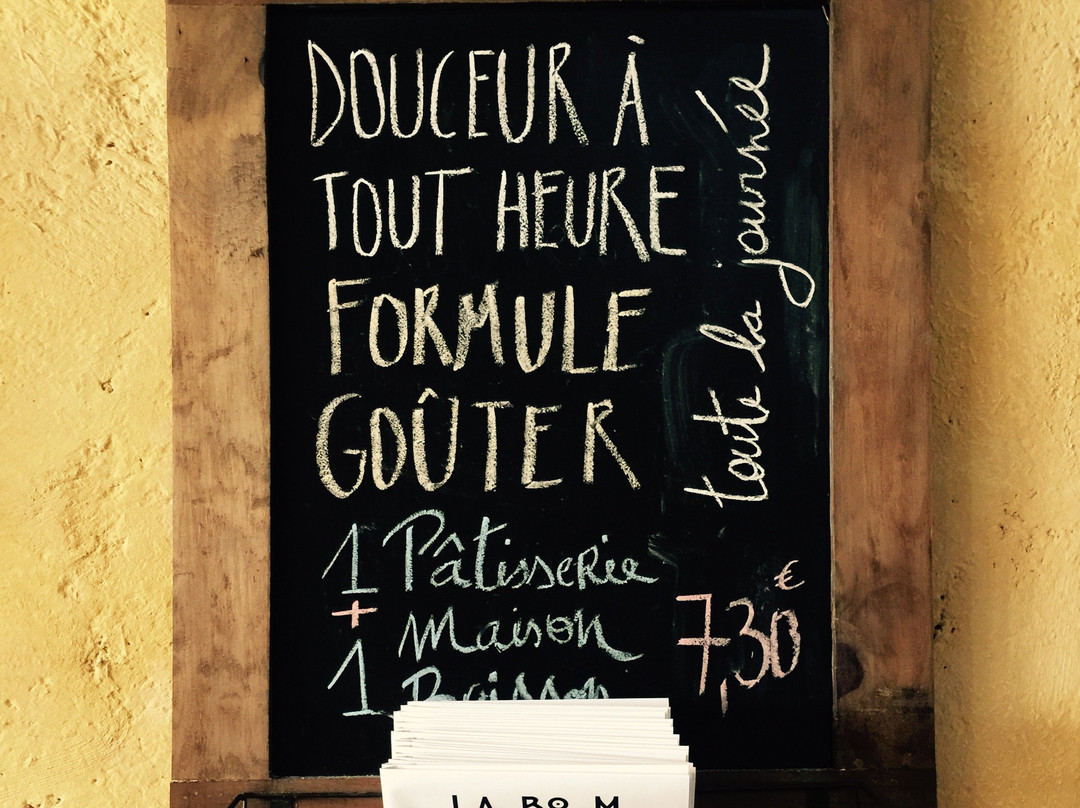 DOUCEUR À
TOUT HEURE
FORMULE
GOÛTER
toute la journée
1 Pâtisserie
+ Maison
1 Boisson
7,30 €